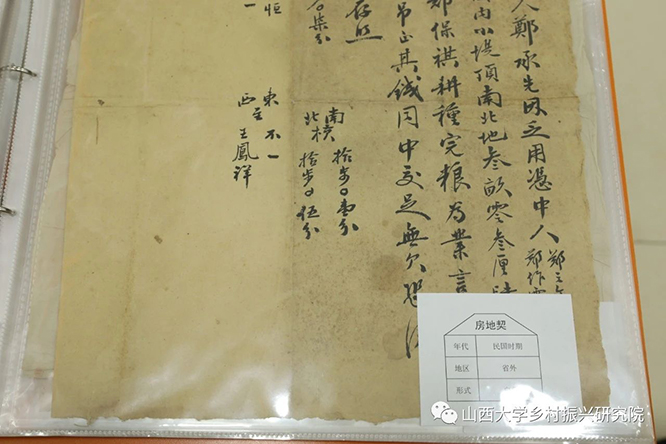 人鄭承先因乏用憑中人
鄭作
內小堤頂南北地叁畝零叁厘
鄭保祺耕種完糧為業言
吊正其錢同中交足無欠恐
存照
南 拾步〇壹分
北橫 拾步〇伍分
〇柒分
東 不一
西至 王鳳祥
恒
一
房地契
年代 民国时期
地区 省外
形式
山西大学乡村振兴研究院